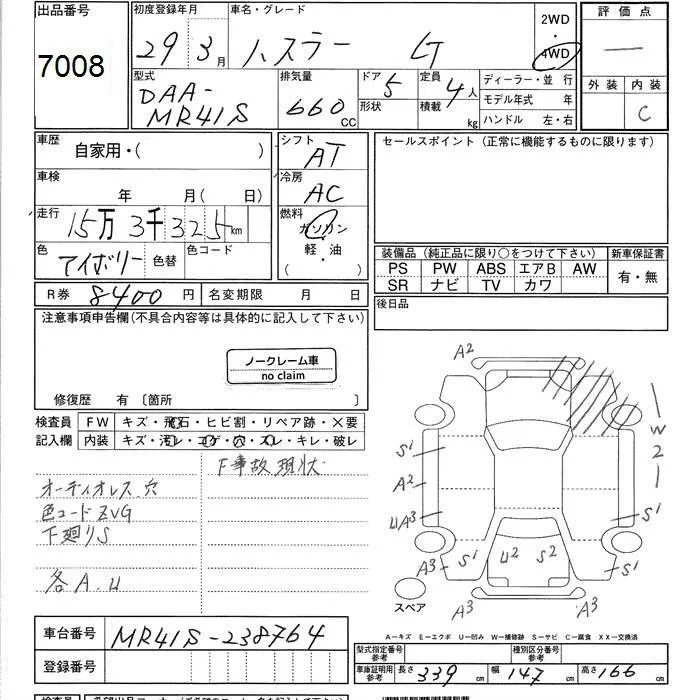 出品番号 初度登録年月 車名・グレード 2WD・4WD 評価点
7008 29年 3月 ハスラー G —
型式 排気量 ドア 定員 ディーラー・並行 外装 内装
DAA-MR41S 660cc 5 4人 モデル年式 年 C
形状 積載 kg ハンドル 左・右
車歴 自家用・( ) シフト AT セールスポイント(正常に機能するものに限ります)
車検 年 月(日) 冷房 AC
走行 15万3千325km 燃料 ガソリン・軽油( )
色 アイボリー 色替 色コード
装備品(純正品に限り○をつけて下さい) 新車保証書
PS PW ABS エアB AW 有・無
SR ナビ TV カワ
R券 8400円 名変期限 月 日 後日品
注意事項申告欄(不具合内容等は具体的に記入して下さい)
ノークレーム車
no claim
修復歴 有〔箇所 〕
検査員 FW キズ・飛石・ヒビ割・リペア跡・×要
記入欄 内装 キズ・汚レ・コゲ・穴・ズレ・キレ・破レ
F事故現状
オーディオレス穴
色コードZVG
下廻りS
各A.U
A2
W2
S1
A2
UA3
S1
A3 S1 U2 S2 S1 A3
A3 A3
スペア
A−キズ E−エクボ U−凹み W−補修跡 S−サビ C−腐食 XX−交換済
車台番号 MR41S-238764
登録番号
型式指定番号 参考 種別区分番号 参考
車庫証明用 参考 長さ 339cm 幅 147cm 高さ 166cm